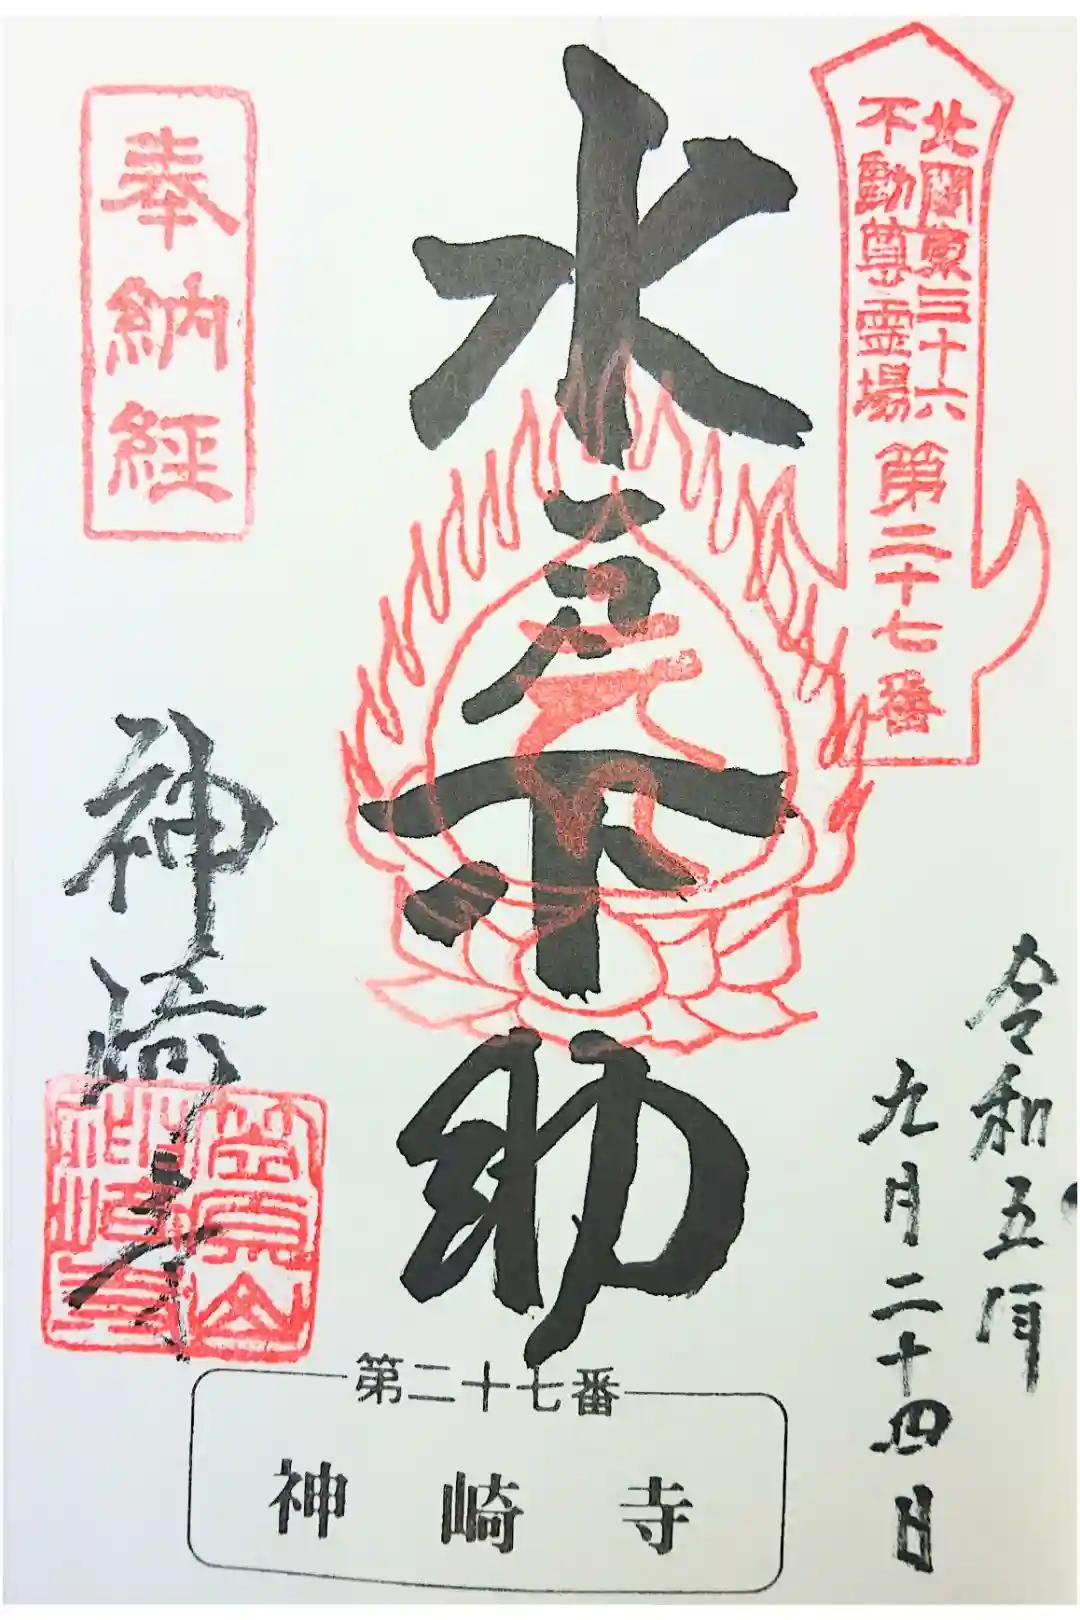 北関東三十六
不動尊霊場
第二十七番
令和五年
九月二十四日
水戸不動
奉納経
神崎寺
笠原山
神崎寺
第二十七番
神崎寺